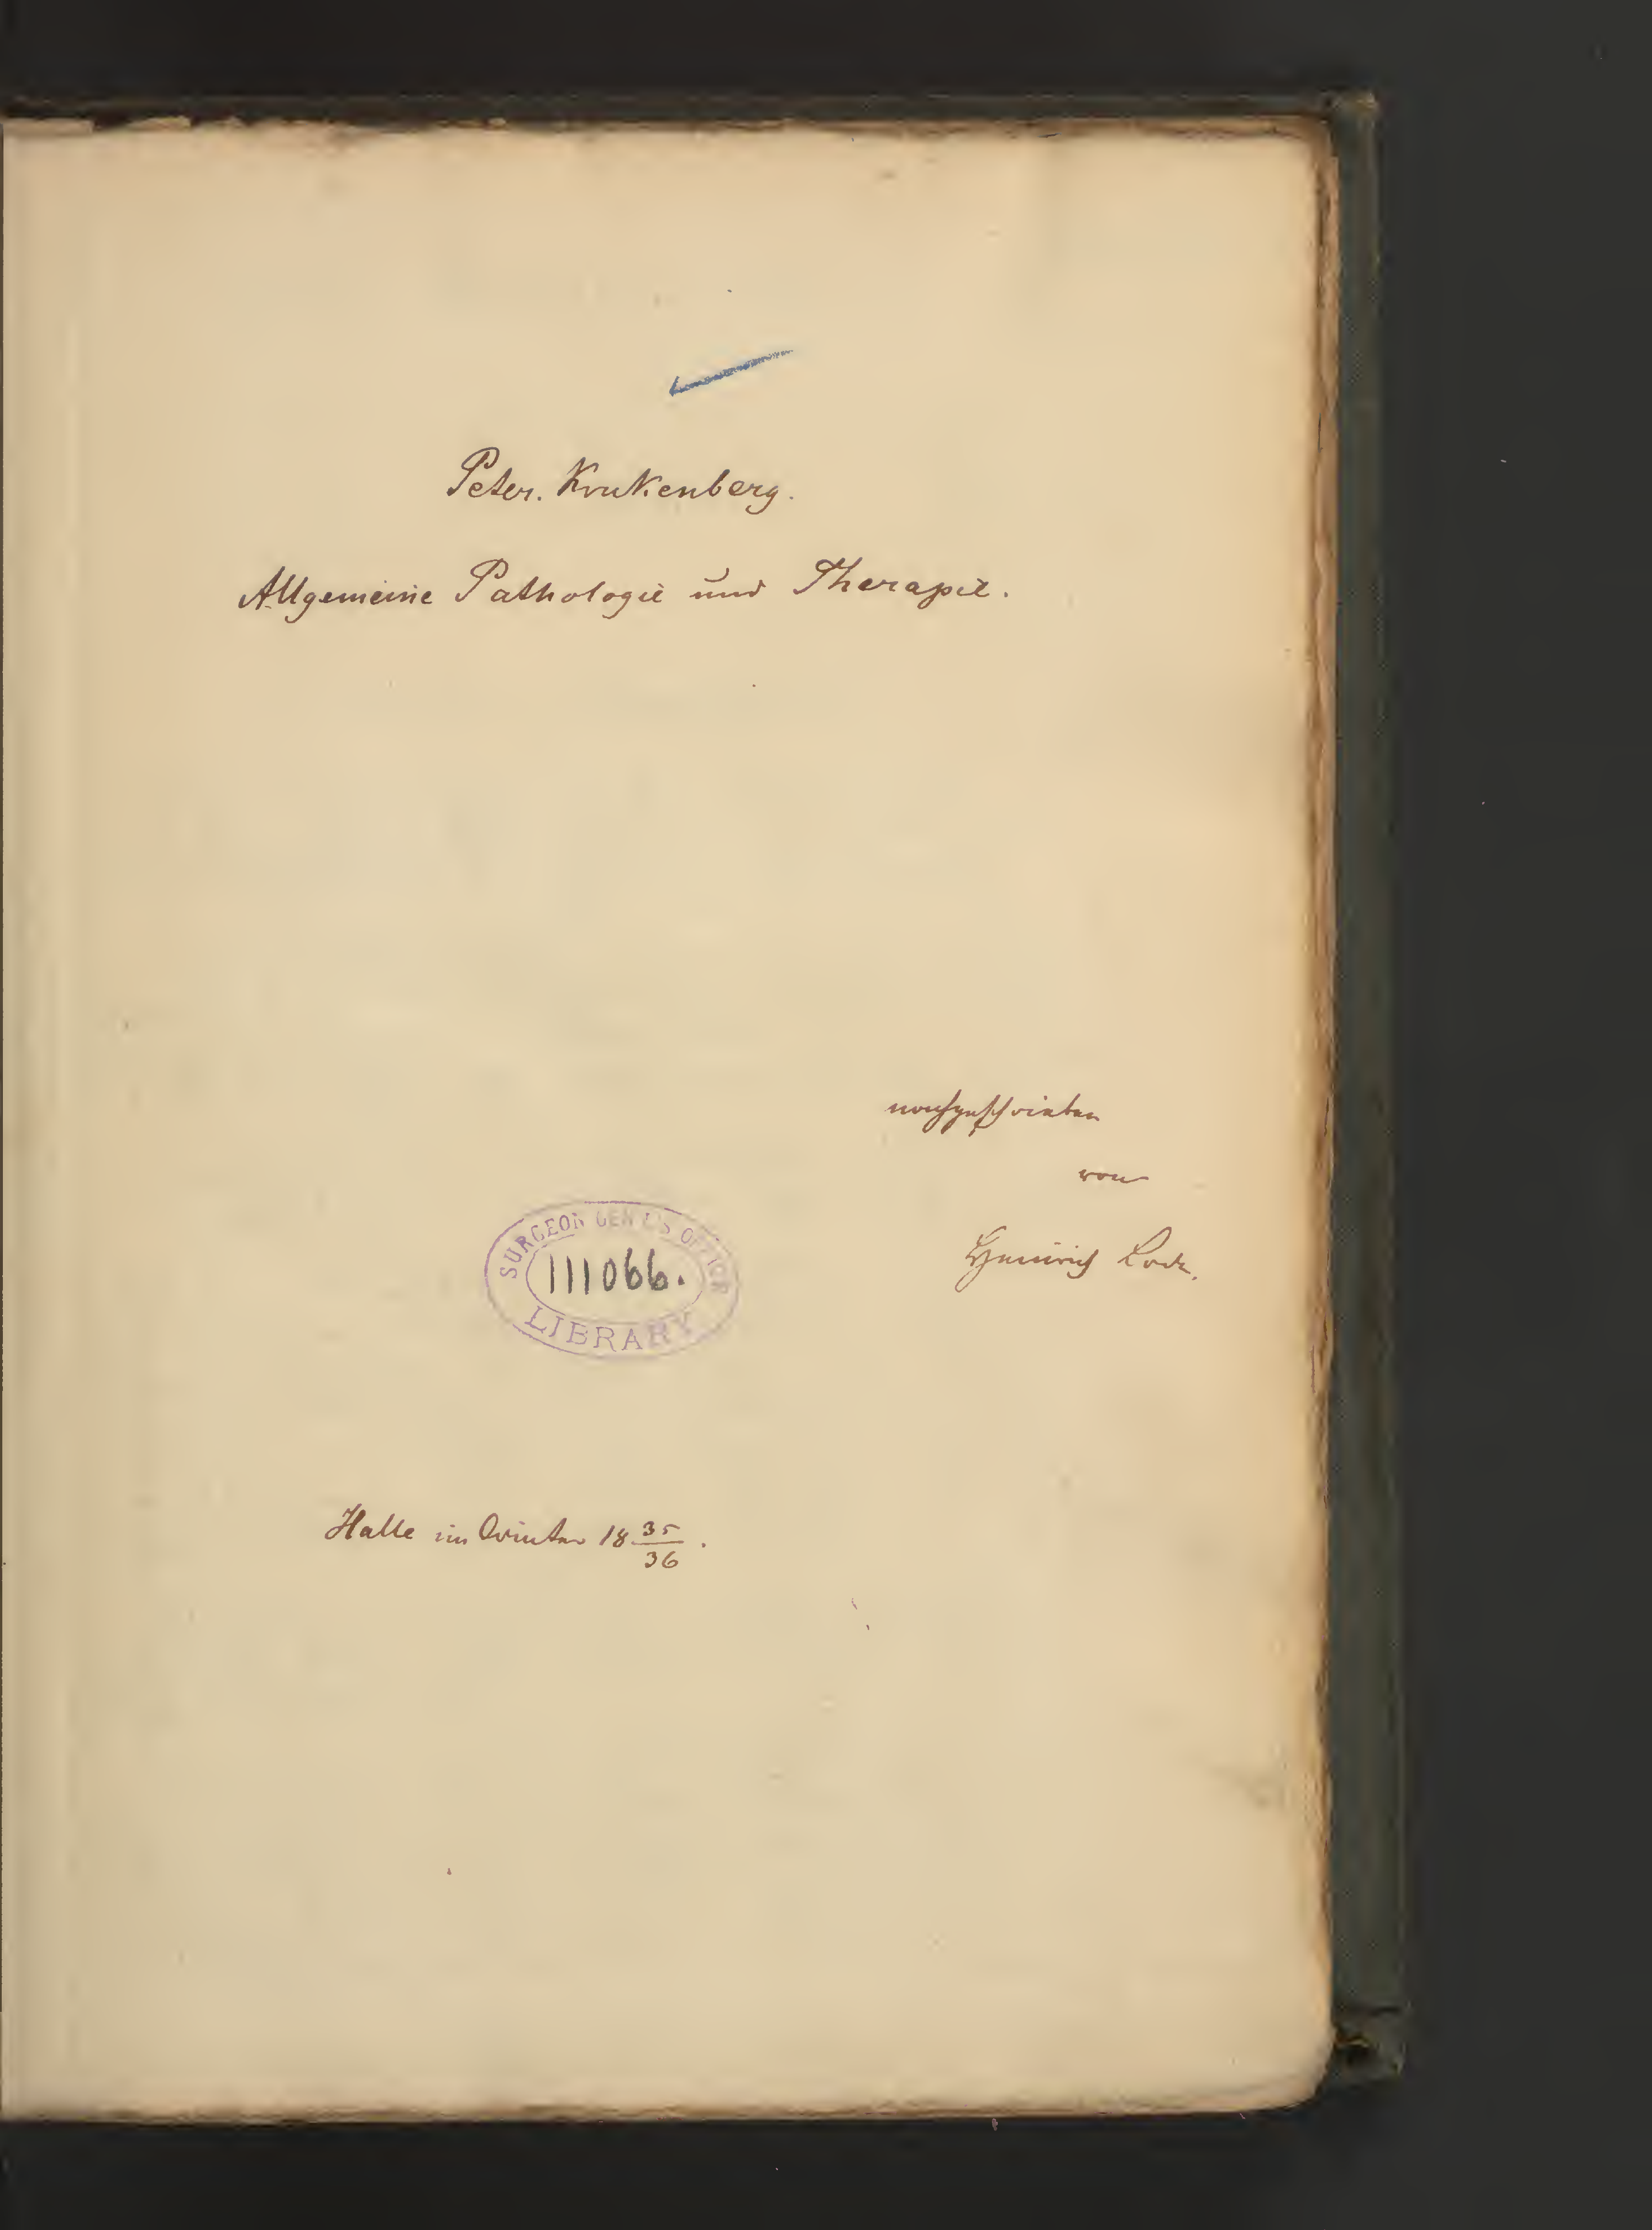 Peter. Krukenberg.
Allgemeine Pathologie und Therapie.
nachgeschrieben
von
Heinrich
SURGEON GEN'L'S OFFICE
111066.
LIBRARY
Halle im Winter 18 35/36.